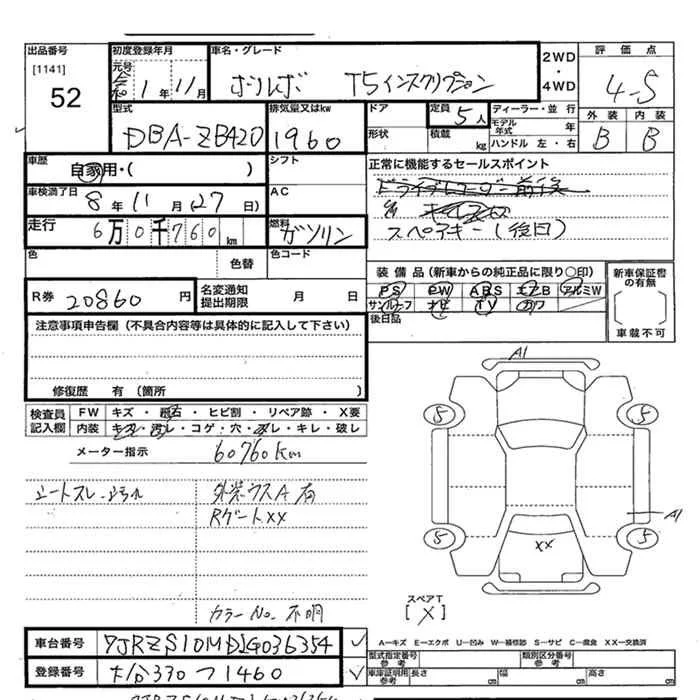 出品番号
[1141]
52
初度登録年月
元号
令和 1 年 11 月
車名・グレード
ボルボ T5インスクリプション
2WD
・
4WD
評価点
4-5
外装 内装
B B
型式
DBA-ZB420
排気量又はkw
1960
ドア
形状
定員
5人
積載
kg
ディーラー・並行
モデル年式 年
ハンドル 左・右
車歴
自家用・( )
シフト
正常に機能するセールスポイント
ドライブレコーダー前後
車検満了日
8 年 11 月 (27 日)
AC
走行
6万0千760km
燃料
ガソリン
スペアキー(後日)
色
色替
色コード
R券 20860 円
名変通知
提出期限
月 日
装備品(新車からの純正品に限り〇印)
PS PW ABS エアB アルミW
サンルーフ ナビ TV カワ
後日品
新車保証書の有無
車載不可
注意事項申告欄(不具合内容等は具体的に記入して下さい)
修復歴 有(箇所 )
検査員記入欄
FW キズ・飛石・ヒビ割・リペア跡・X要
内装 キズ・汚レ・コゲ・穴・スレ・キレ・破レ
メーター指示 60760km
シートスレ
外装ウスA有
Rゲートxx
カラーNo.不明
A1
5
5
A1
5
5
xx
スペアT
[X]
車台番号 7JRZS10MDLG036354
登録番号 大分330つ1460
A-キズ E-エクボ U-凹み W-補修跡 S-サビ C-腐食 XX-交換済
型式指定番号 参考
類別区分番号 参考
車庫証明用 参考
長さ cm
幅 cm
高さ cm